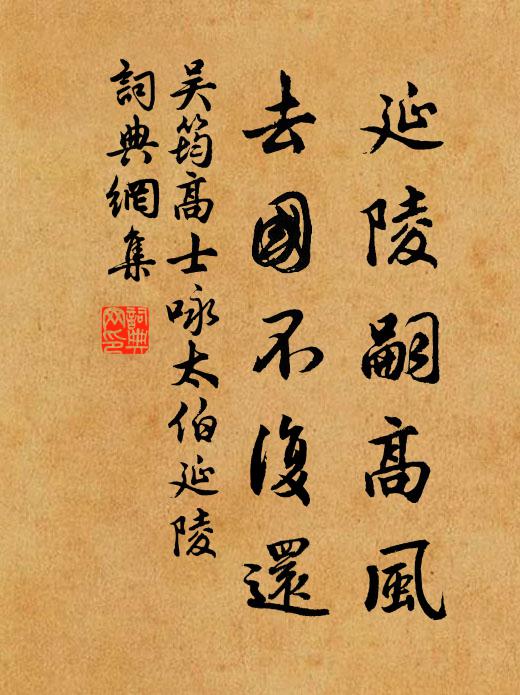 延陵嗣高風
去國不復還
吴筠高士咏太伯延陵
詞典網集
詞典網印